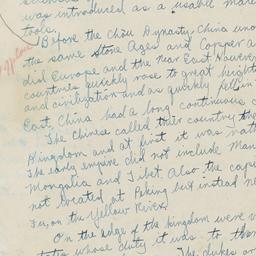 was introduced as a usable mate
tools.
Before the Chou Dynasty China
the same Stone Ages and Copper a
did Europe and the near East. However
countries quickly rose to great height
and civilization and as quickly fell in
East, China had a long continuous c
The Chinese called their country the
Kingdom and at first it was nat
The early empire did not include Man
Mongolia and Tibet. Also the cap
not located at Peking but instead ne
Fu, on the Yellow River.
On the edge of the kingdom were v
states whose duty it was to
The dukes or